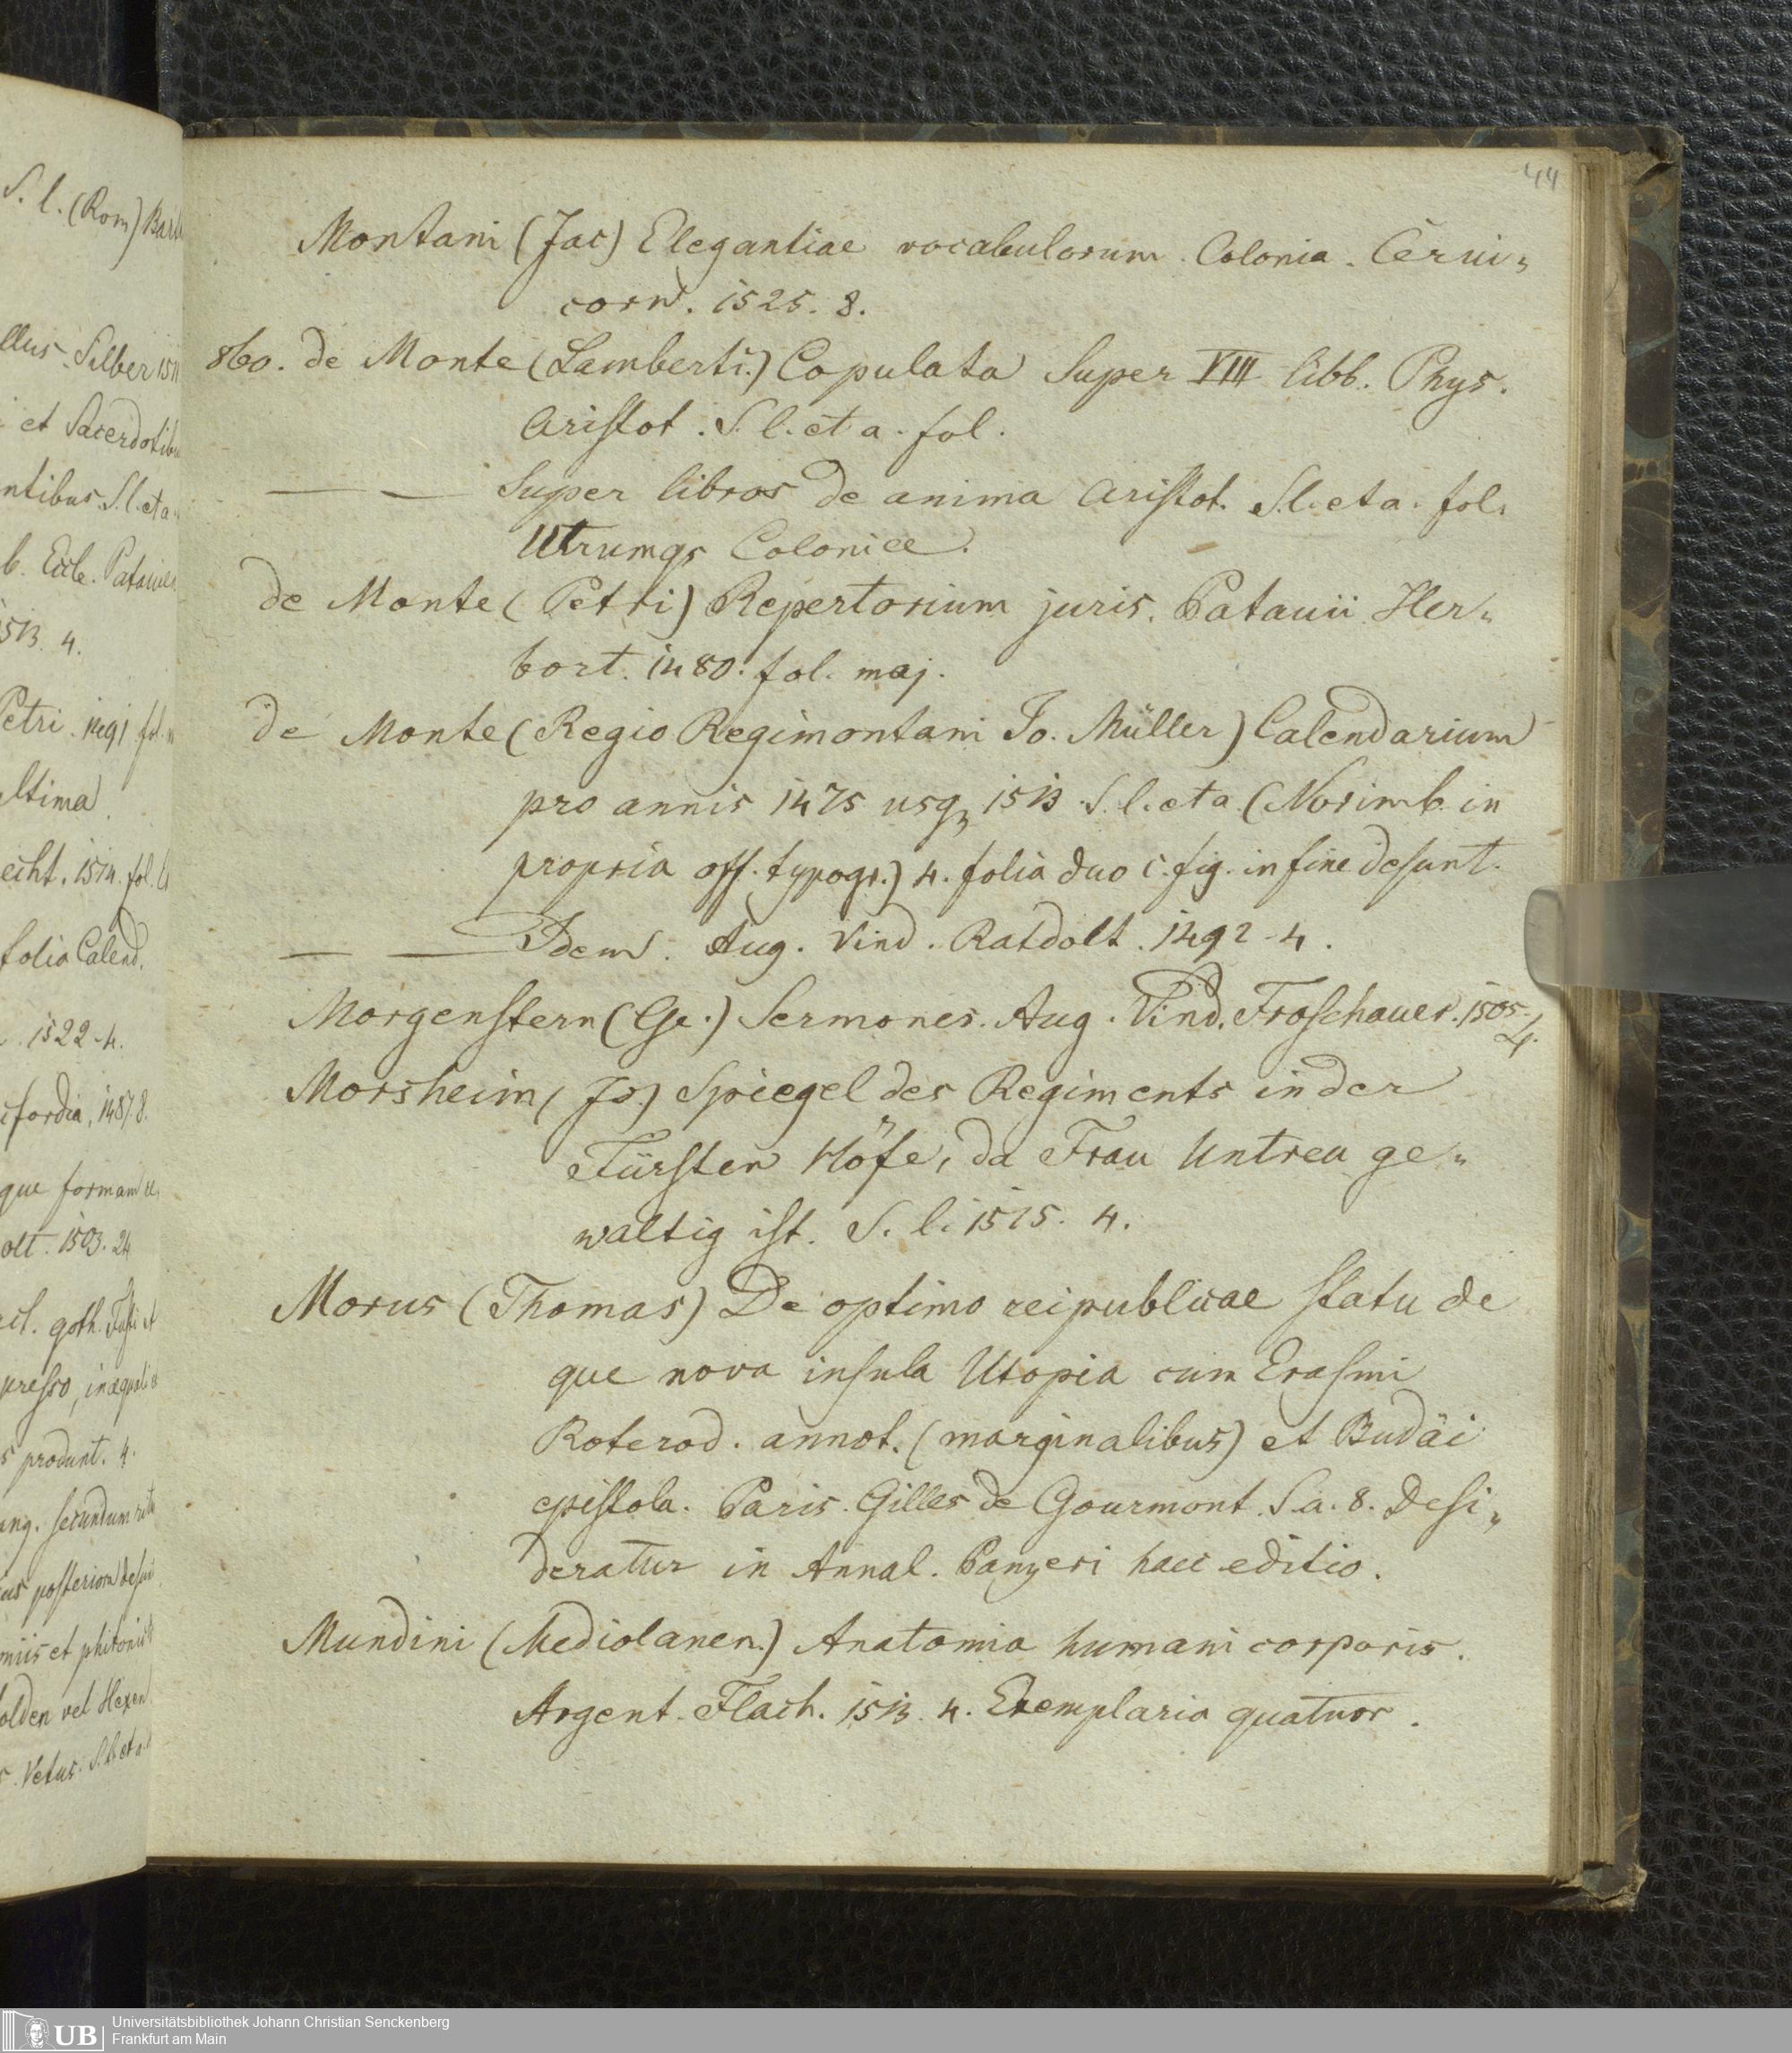 S. l. (Rom)
llus. Silber
et Sacerdotibu
ntibus. S. l. et a.
b. Eccle.
1513. 4.
Petri. 1491 fol.
ultima.
echt. 1514. fol.
folia Calend.
1522. 4.
fordia, 1487. 8.
que formam
olt. 1503. 24
goth.
presso,
s produnt. 4.
ang. secundum
posteriora
miis et
olden vel Hexen
Vetus. S. l. et a.
44
Montani (Jac) Elegantiae vocabulorum. Colonia. Cervi„
corn. 1525. 8.
860. de Monte (Lamberti.) Copulata super VIII libb. Phys.
Aristot. S. l. et a. fol.
— — super libros de anima Aristot. S. l. et a. fol.
Utrumqs Coloniae.
de Monte (Petri) Repertorium juris. Patauii Her„
bort. 1480. fol. maj.
de Monte (Regio Regimontani Jo. Müller) Calendarium
pro annis 1475 usqz 1513 S. l. et a (Norimb. in
propria off. typogr.) 4. folia duo c. fig. in fine desunt.
— — Idem. Aug. Vind. Ratdolt. 1492 - 4.
Morgenstern (Ge.) Sermones. Aug. Vind. Froschauer. 1505.
4.
Morsheim (Jo.) Spiegel des Regiments in der
Fürsten Höfe, da Frau Untreu ge„
waltig ist. S. l. 1515. 4.
Morus (Thomas) De optimo reipublicae statu de
que nova insula Utopia cum Erasmi
Roterod. annot. (marginalibus) et Budäi
epistola. Paris. Gilles de Gourmont. S. a. 8. Desi„
deratur in Annal. Panzeri haec editio.
Mundini (Mediolanen.) Anatomia humani corporis.
Argent. Flach. 1513. 4. Exemplaria quatuor.
UB
Universitätsbibliothek Johann Christian Senckenberg
Frankfurt am Main